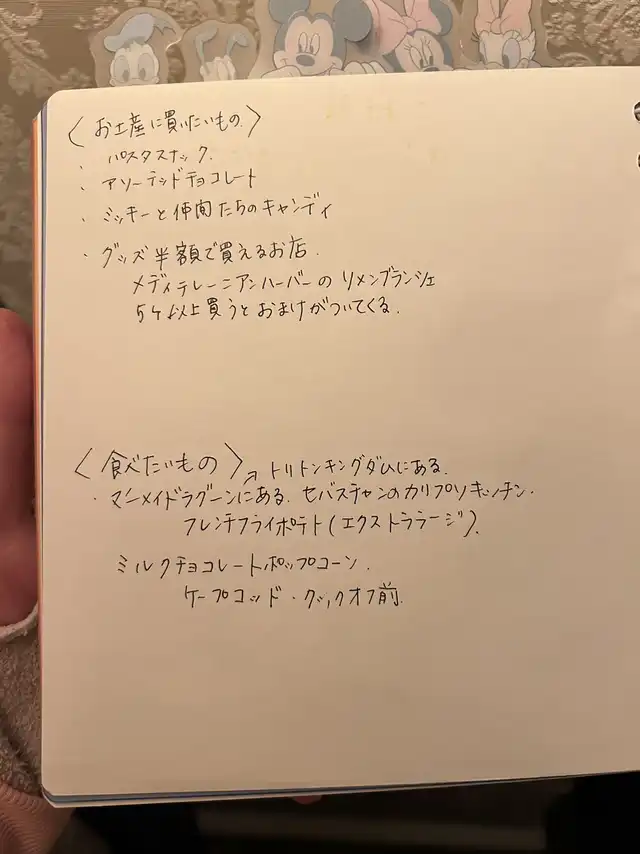 〈お土産に買いたいもの〉
・パスタスナック.
・アソーテッドチョコレート
・ミッキーと仲間たちのキャンディ
・グッズ半額で買えるお店.
メディテレーニアンハーバーの リメンブランシェ
5ヶ以上買うとおまけがついてくる.
〈食べたいもの〉→トリトンキングダムにある.
・マーメイドラグーンにある. セバスチャンのカリプソキッチン.
フレンチフライポテト(エクストララージ).
ミルクチョコレートポップコーン.
ケープコッド・クックオフ前.